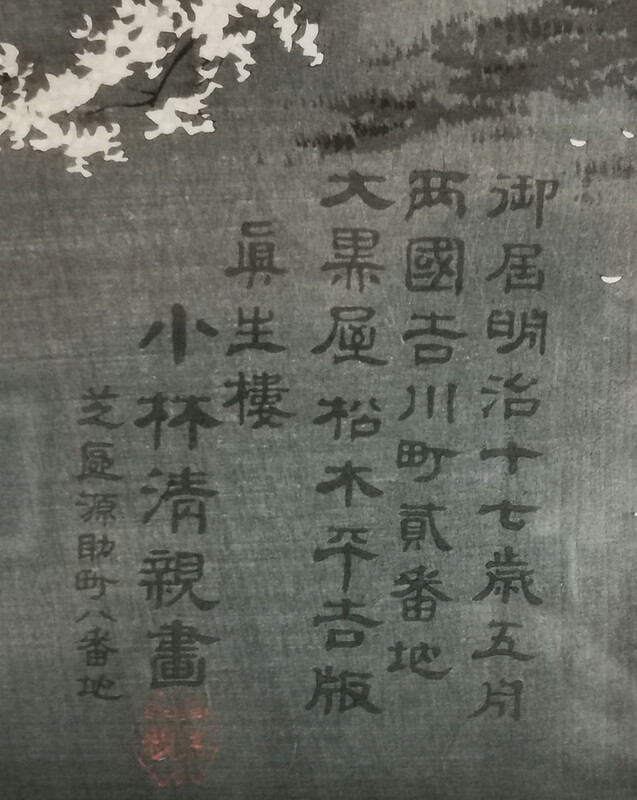 御届明治十七歳五月
両國吉川町貳番地
大黒屋松木平吉版
眞生樓
小林清親畫
芝區源助町八番地